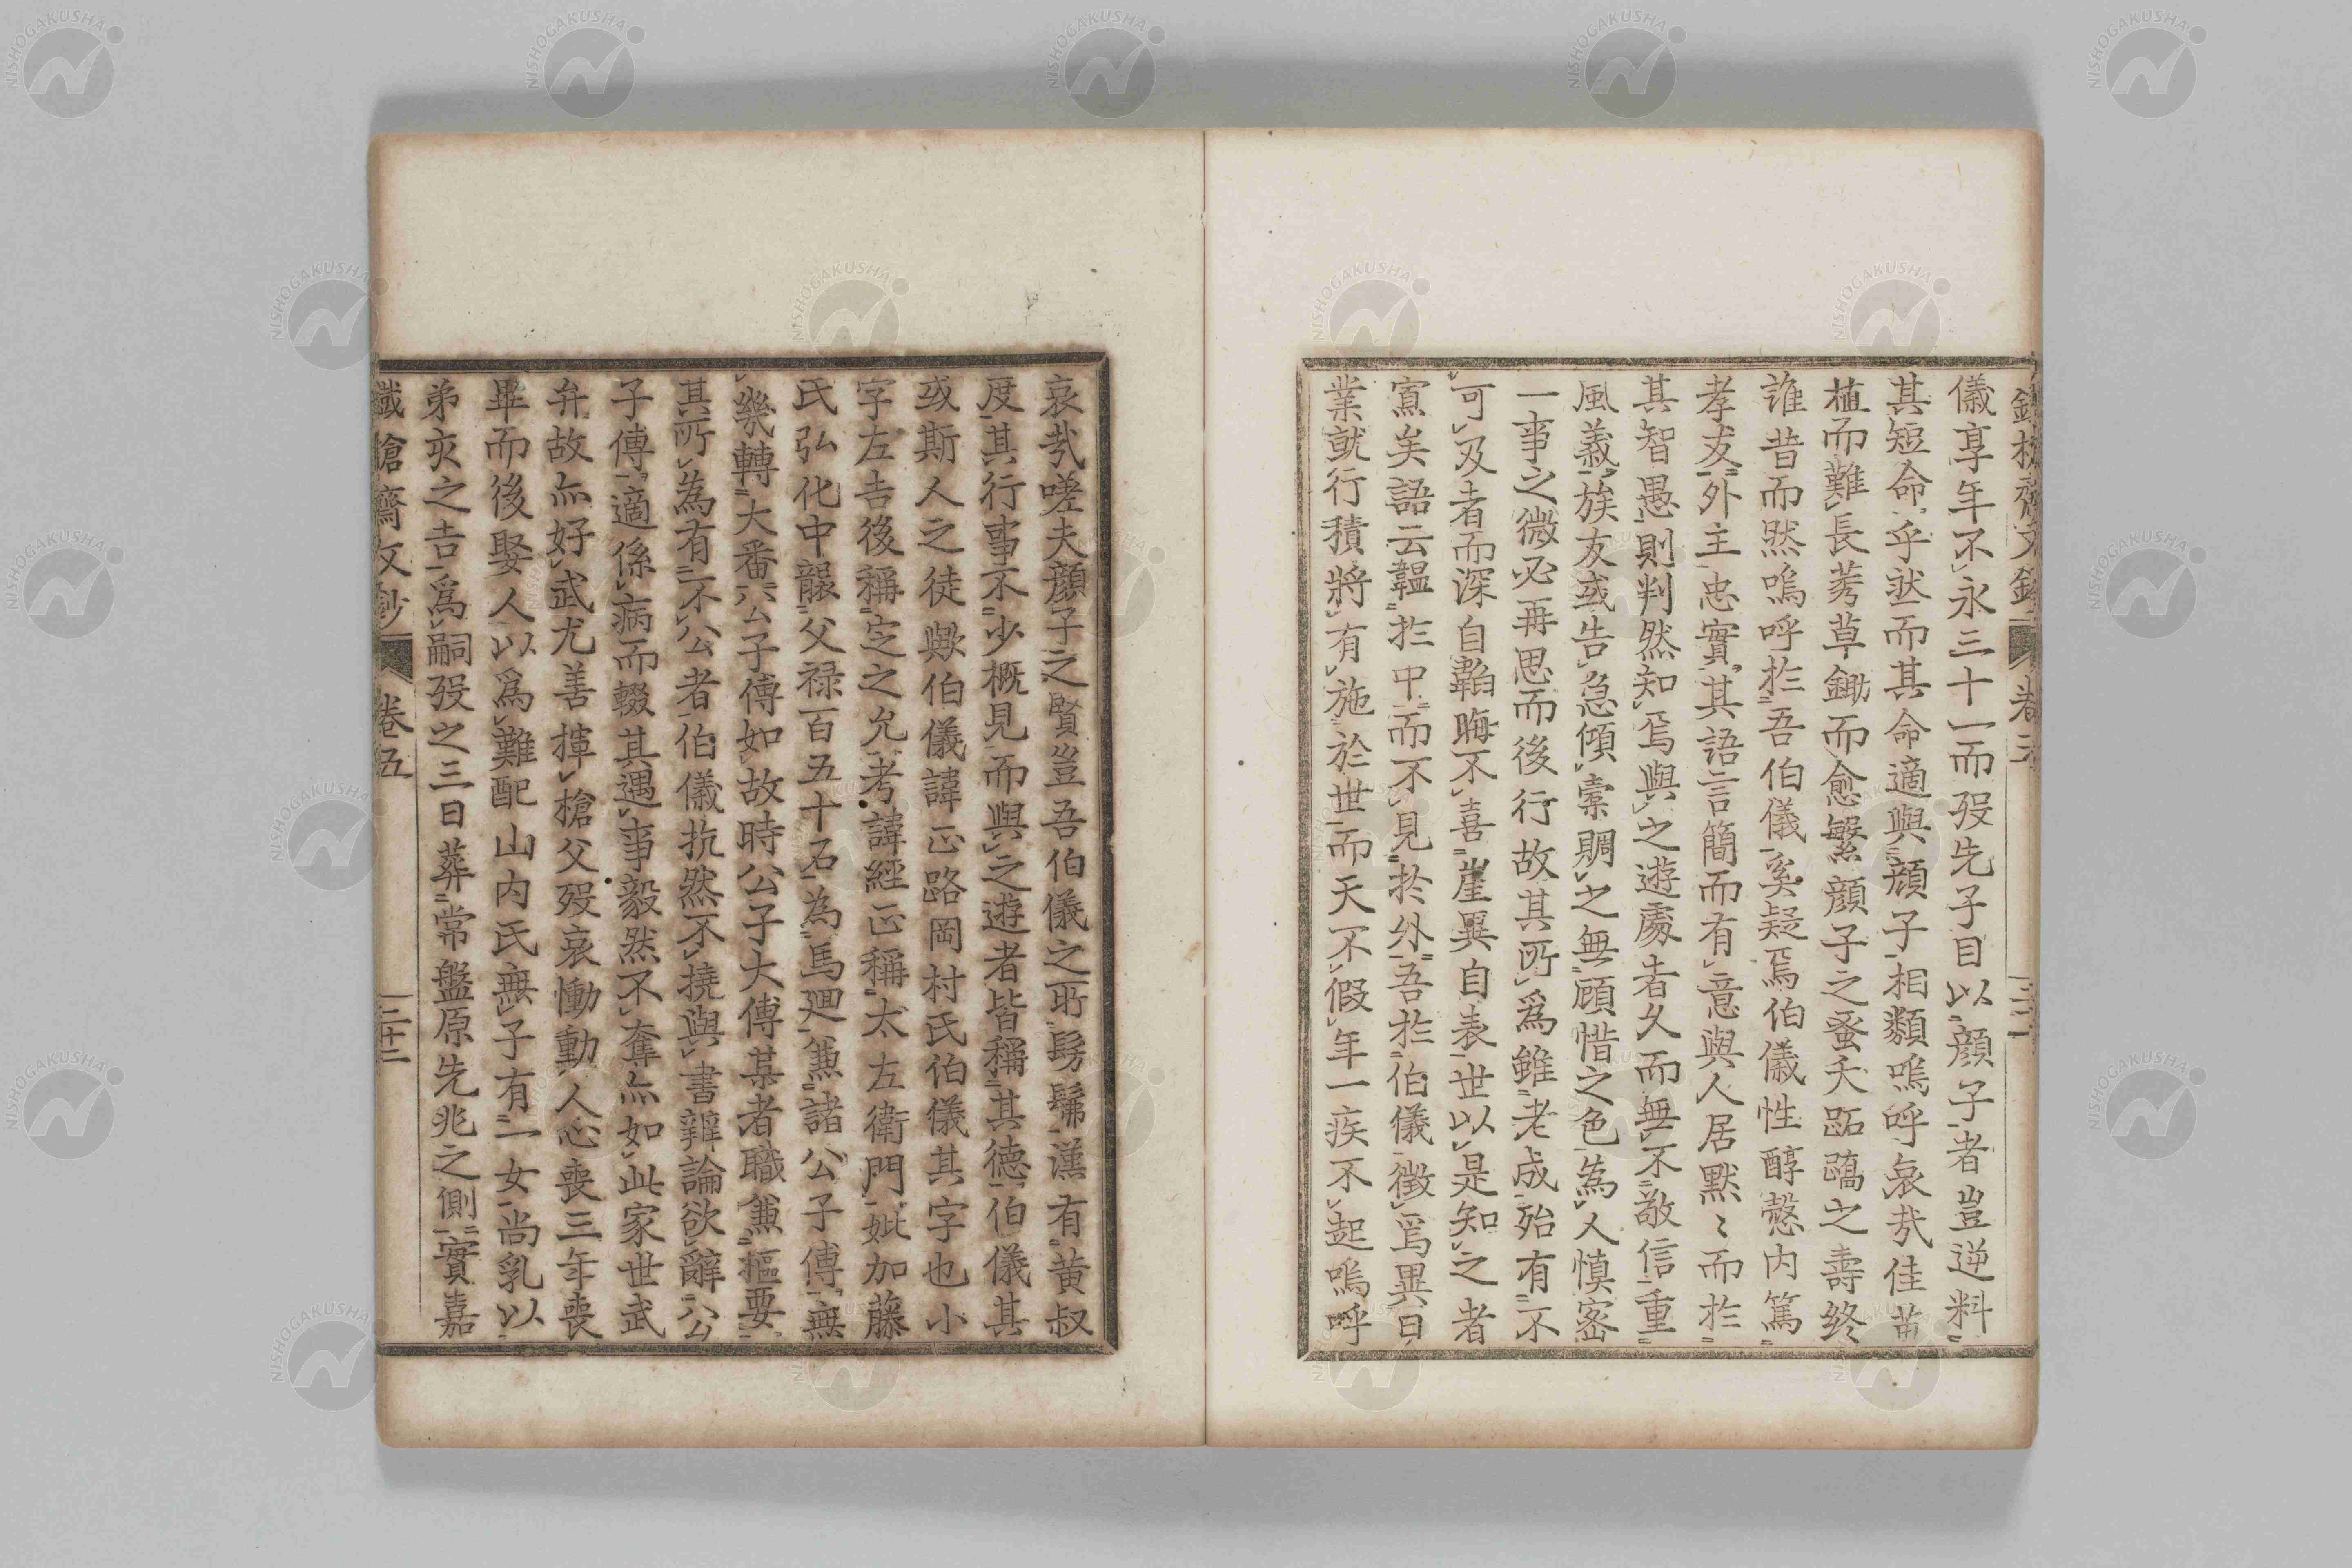 儀享年不永三十一而歿先子目以顔子者豈逆料
其短命乎然而其命適與顔子相類嗚呼哀哉佳苗
植而難長莠草鋤而愈繁顔子之蚤夭跖蹻之壽終
誰昔而然嗚呼於吾伯儀奚疑焉伯儀性醇慤内篤
孝友外主忠實其語言簡而有意與人居默〻而於
其智愚則判然知焉與之遊處者久而無不敬信重
風義族友或告急傾橐賙之無顧惜之色為人慎密
一事之微必再思而後行故其所爲雖老成殆有不
可及者而深自韜晦不喜崖異自表世以是知之者
寡矣語云韞於中而不見於外吾於伯儀徴焉異日
業就行積將有施於世而天不假年一疾不起嗚呼
哀哉嗟夫顔子之賢豈吾伯儀之所髣髴漢有黄叔
度其行事不少概見而與之遊者皆稱其德伯儀其
或斯人之徒歟伯儀諱正路岡村氏伯儀其字也小
字左吉後稱定之允考諱經正稱太左衛門妣加藤
氏弘化中襲父禄百五十石為馬廻兼諸公子傅無
幾轉大番六公子傅如故時公子大傅某者職兼樞要
其所為有不公者伯儀抗然不撓與書辨論欲辭公
子傅適係病而輟其遇事毅然不奪亦如此家世武
弁故亦好武尤善揮槍父歿哀慟動人心喪三年喪
畢而後娶人以爲難配山内氏無子有一女尚乳以
弟亥之吉爲嗣歿之三日葬常盤原先兆之側實嘉
鐵槍齋文鈔 卷五 三十二